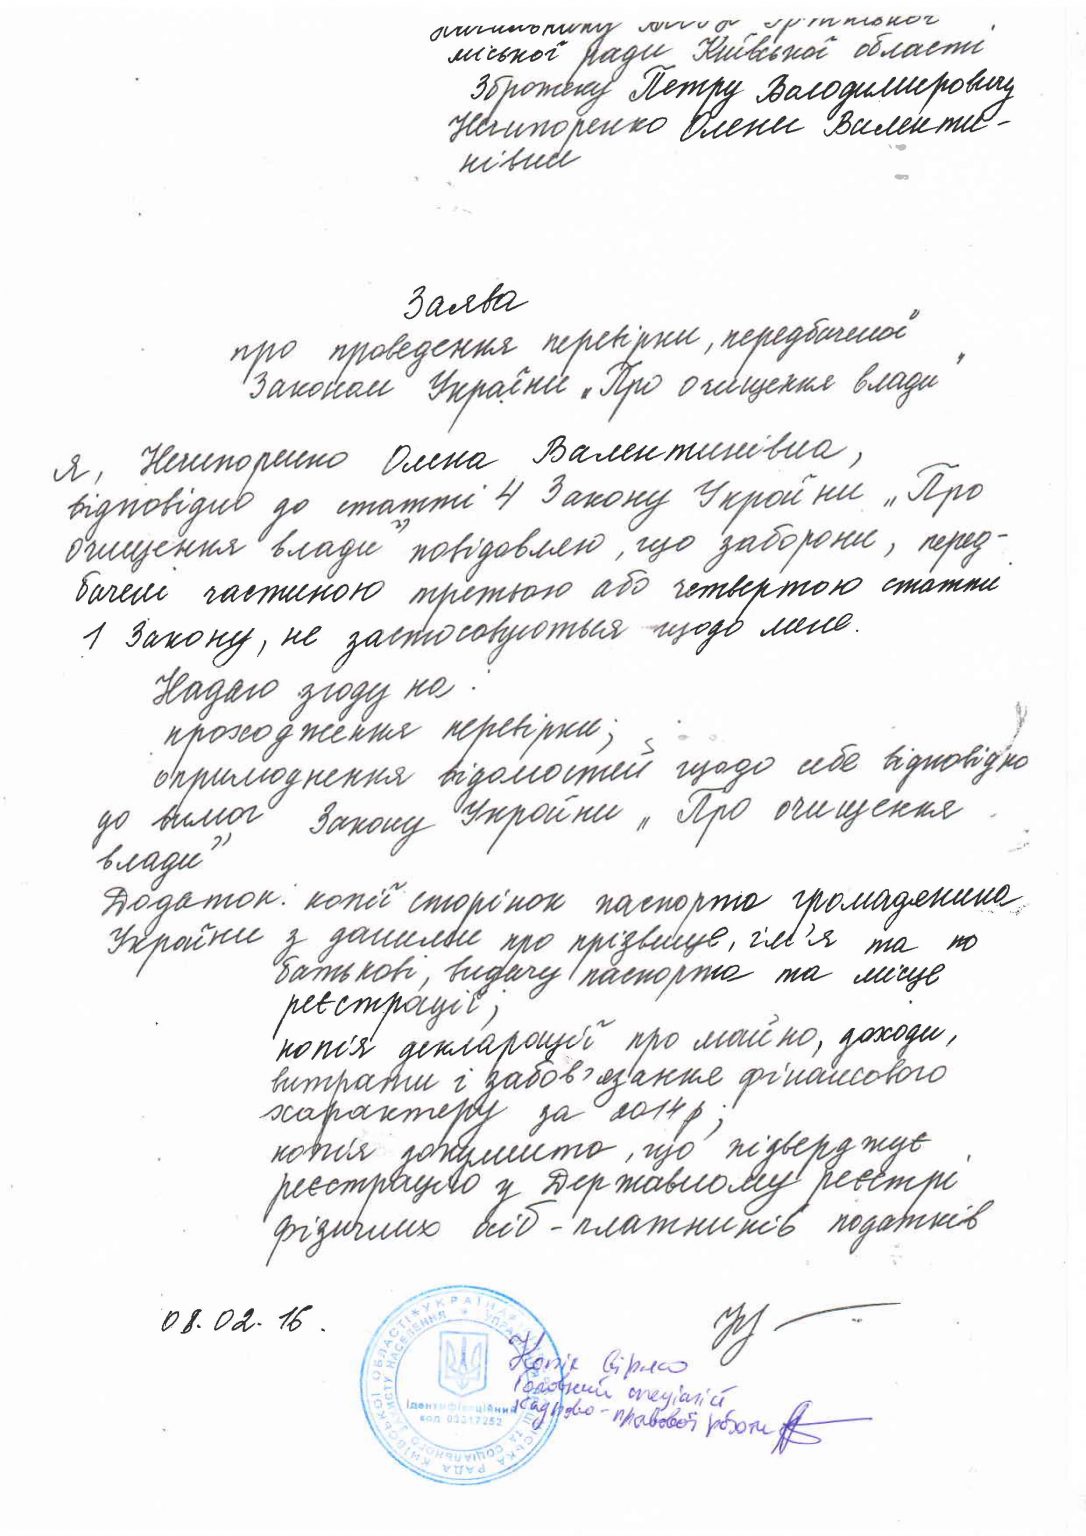 міської ради Київської області
Збротеку Петру Володимировичу
Нечипоренко Олени Валенти-
нівни
Заява
про проведення перевірки, передбаченої
Законом України „Про очищення влади"
Я, Нечипоренко Олена Валентинівна,
відповідно до статті 4 Закону України „Про
очищення влади" повідомляю, що заборони, перед-
бачені частиною третьою або четвертою статті
1 Закону, не застосовуються щодо мене.
Надаю згоду на:
проходження перевірки;
оприлюднення відомостей щодо себе відповідно
до вимог Закону України „Про очищення
влади"
Додаток: копії сторінок паспорта громадянина
України з даними про прізвище, ім'я та по
батькові, видачу паспорта та місце
реєстрації;
копія декларації про майно, доходи,
витрати і забов'язання фінансового
характеру за 2014р;
копія документа, що підверджує
реєстрацію у Державному реєстрі
фізичних осіб-платників податків
08.02.16.
Копія вірна
Головний спеціаліст
кадрово-правової роботи
УКРАЇНА
КИЇВСЬКОЇ ОБЛАСТІ
МІСЬКА РАДА
ЗАХИСТУ НАСЕЛЕННЯ
ТА СОЦІАЛЬНОГО
Ідентифікаційний
код 03317252